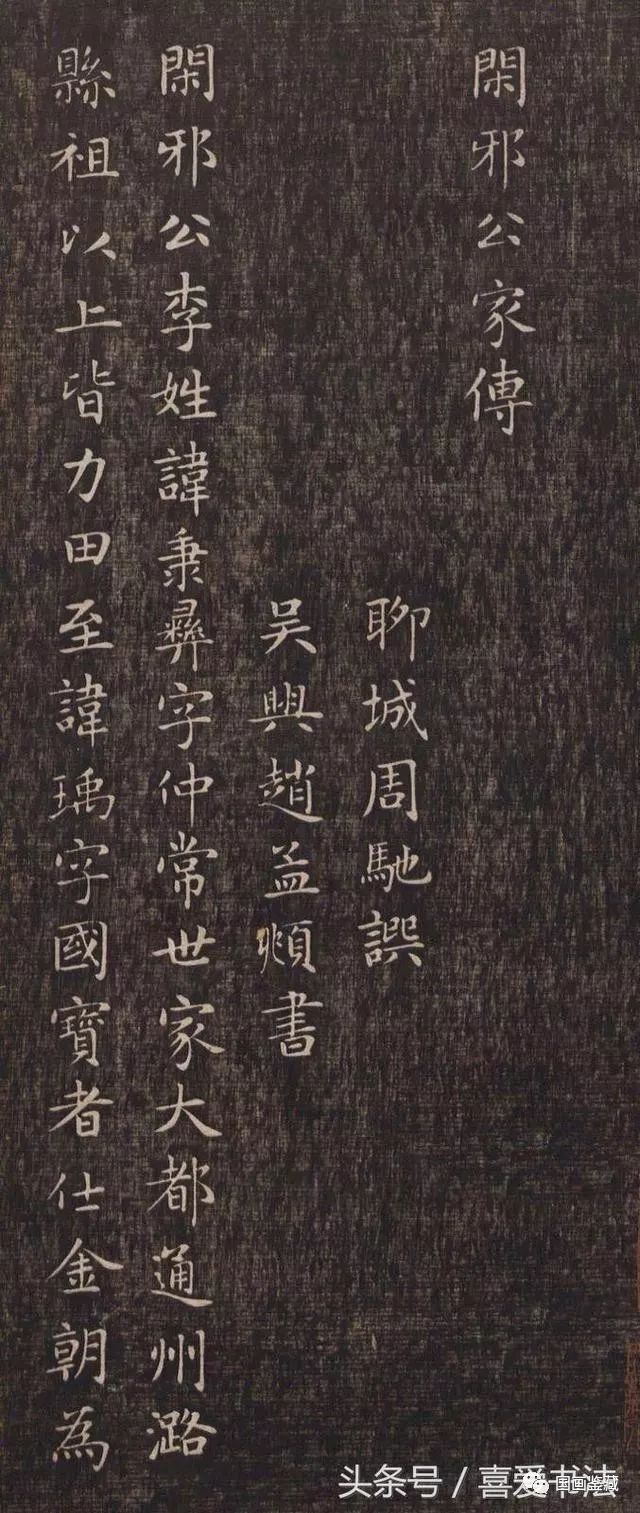 閑邪公家傳
聊城周馳譔
吴興趙孟頫書
閑邪公李姓諱秉彝字仲常世家大都通州潞
縣祖以上皆力田至諱瑀字國寶者仕金朝為
头条号 / 喜爱书法
国画鉴藏